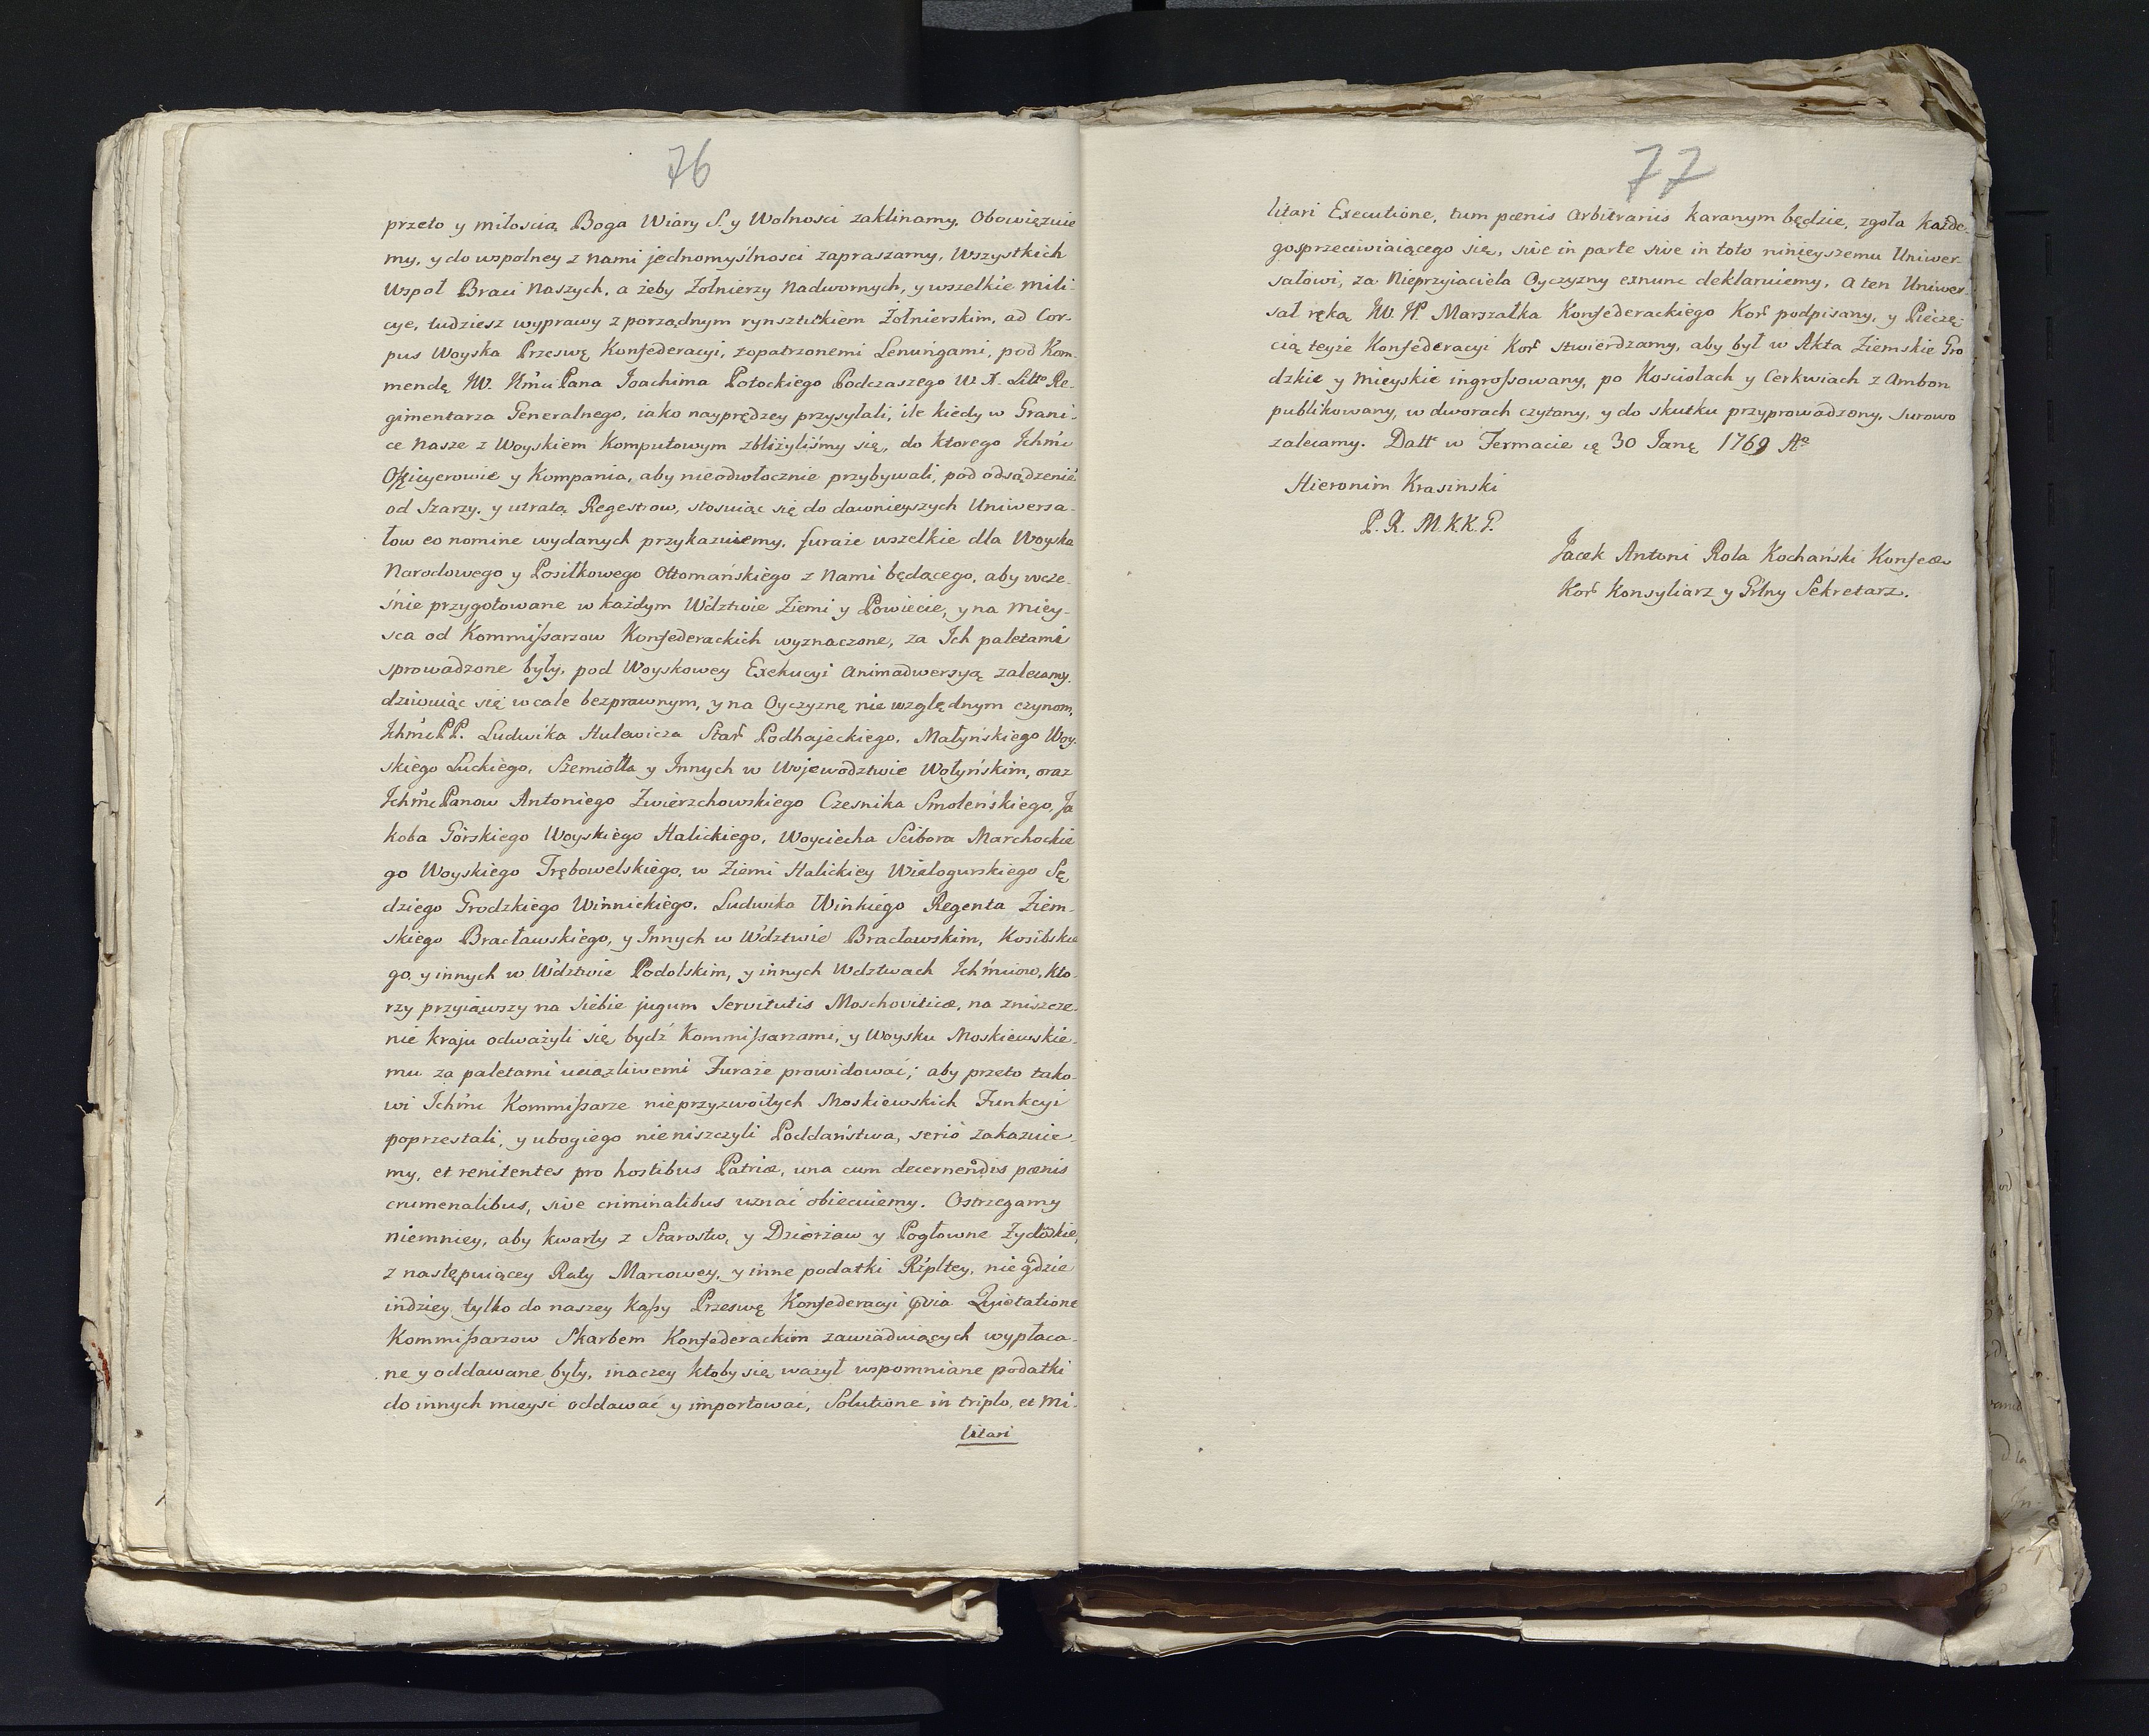 76
przeto y miłoscią Boga Wiary S. y Wolnosci zaklinamy, Obowięzuie
my, y do wspolney z nami jednomyślnosci zapraszamy, Wszystkich
Wspoł Braci Naszych, a żeby Zołnierzy Nadwornych, y wszelkie mili-
cye, tudziesz wyprawy z porządnym rynsztukiem Żołnierskim, ad Cor-
pus Woyska Przeswę Konfederacyi, zopatrzonemi Lenungami, pod Kom-
mendę JW. Jmci Pana Joachima Potockiego Podczaszego W. X. Litto Re-
gimentarza Generalnego, iako nayprędzey przysyłali, ile kiedy w Grani-
ce Nasze z Woyskiem Komputowym zbliżyliśmy się, do ktorego Ichmc
Officyerowie y Kompania, aby nieodwłocznie przybywali, pod odsądzenie
od Szarzy. y utratą Regestrow, stosuiąc się do dawnieyszych Uniwersa-
łow eo nomine wydanych przykazuiemy, furaże wszelkie dla Woyska
Narodowego y Posiłkowego Ottomańskiego z Nami będącego, aby wcze-
śnie przygotowane w każdym Wdztwie Ziemi y Powiecie, y na miey-
sca od Kommissarzow Konfederackich wyznaczone, za Ich paletami
sprowadzone były, pod Woyskowey Exekucyi animadwersyą zalecamy.
dziwuiąc się wcale bezprawnym, y na Oyczyznę nie względnym czynom,
Ichmc PP. Ludwika Hulewicza Star Podhajeckiego, Małyńskiego Woy-
skiego Łuckiego, Szemiotta y Innych w Wojewodztwie Wołyńskim, oraz
Ichmc Panow Antoniego Zwierzchowskiego Czesnika Smoleńskiego, Ja
koba Górskiego Woyskiego Halickiego, Woyciecha Scibora Marchockie
go Woyskiego Trębowelskiego, w Ziemi Halickiey Wielogurskiego Sę
dziego Grodzkiego Winnickiego, Ludwika Winkiego Regenta Ziem-
skiego Bracławskiego, y Innych w Wdztwie Bracławskim, Kosibskie
go, y innych w Wdztwie Podolskim, y innych Wdztwach Ichmciow, kto-
rzy przyiąwszy na siebie jugum Servitutis Moschoviticæ, na zniszcze-
nie kraju odważyli się bydź Kommissarzami, y Woysku Moskiewskie-
mu za paletami uciążliwemi Furaże prowidować; aby przeto tako-
wi Ichmc Kommissarze nieprzyzwoitych Moskiewskich Funkcyi
poprzestali, y ubogiego nie niszczyli Poddaństwa, serio zakazuie-
my, et renitentes pro hostibus Patriæ, una cum decernendis pœnis
crumenalibus, sive criminalibus uznać obiecuiemy. Ostrzegamy
niemniey, aby kwarty z Starostw, y Dzierżaw y Pogłowne Żydowskie,
z następuiącey Raty Marcowey, y inne podatki Rzpltey, nie gdzie
indziey, tylko do naszey Kassy Przeswę Konfederacyi Quietatione
Kommissarzow Skarbem Konfederackim zawiaduiących wypłaca-
ne y oddawane były, inaczey ktoby się ważył wspomniane podatki
do innych mieysc oddawać y importować, Solutione in triplo, et Mi-
litari
77
litari Executione, tum pœnis arbitrariis karanym będzie, zgoła każde-
go sprzeciwiaiącego się, sive in parte sive in toto ninieyszemu Uniwer
sałowi, za Nieprzyjaciela Oyczyzny exnunc deklaruiemy, a ten Uniwer-
sał ręką JW. JP. Marszałka Konfederackiego Kor podpisany, y Pieczę-
cią teyże Konfederacyi Kor stwierdzamy, aby był w Akta Ziemskie Gro
dzkie y Mieyskie ingrossowany, po Kosciołach y Cerkwiach z Ambon
publikowany, w dworach czytany, y do skutku przyprowadzony, surowo
zalecamy. Datt w Jermacie 30 Janę 1769 Ao
Hieronim Krasinski
P. R. M. K. K. P.
Jacek Antoni Rola Kochański Konfedu
Kor Konsyliarz y Grlny Sekretarz.